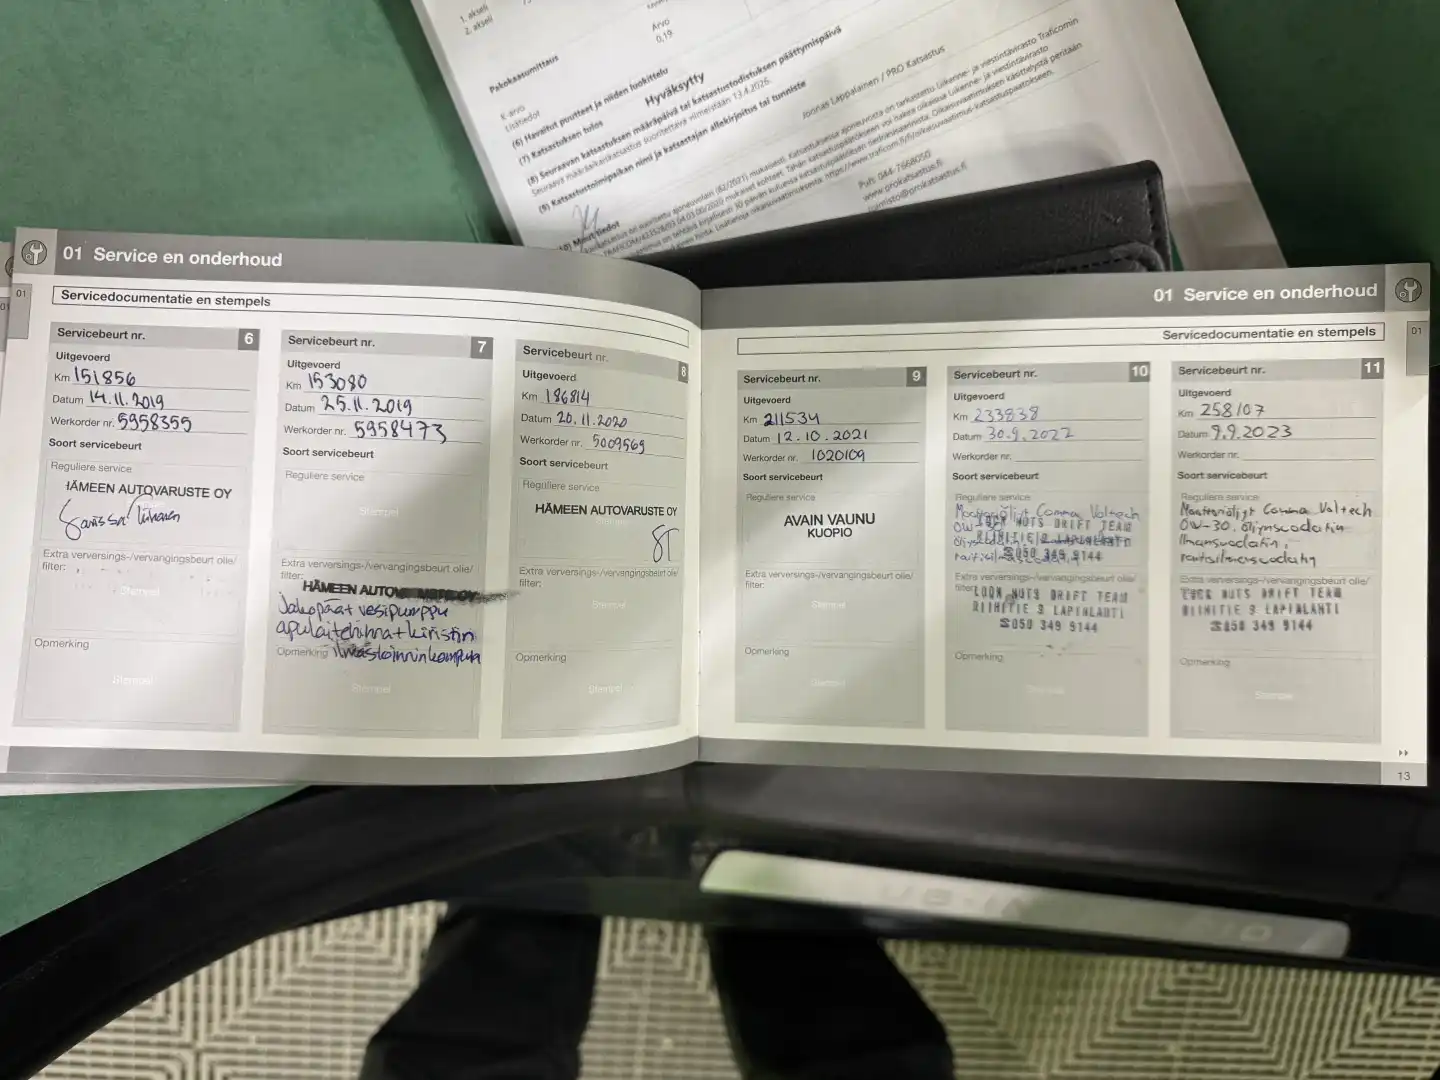 1. akseli
2. akseli
Arvo
0,19
Pakokaasumittaus
K-arvo
Lisätiedot
(6) Havaitut puutteet ja niiden luokittelu
(7) Katsastuksen tulos
Hyväksytty
(8) Seuraavan katsastuksen määräpäivä tai katsastustodistuksen päättymispäivä
Seuraava määräaikaiskatsastus suoritettava viimeistään 13.4.2026.
(9) Katsastustoimipaikan nimi ja katsastajan allekirjoitus tai tunniste
Joonas Lappalainen / PRO Katsastus
Puh. 044-7668050
www.prokatsastus.fi
toimisto@prokatsastus.fi
01 Service en onderhoud
01
Servicedocumentatie en stempels
Servicebeurt nr. 6
Uitgevoerd
Km 151856
Datum 14.11.2019
Werkorder nr. 5958355
Soort servicebeurt
Reguliere service
HÄMEEN AUTOVARUSTE OY
Extra verversings-/vervangingsbeurt olie/
filter:
Stempel
Opmerking
Stempel
Servicebeurt nr. 7
Uitgevoerd
Km 153080
Datum 25.11.2019
Werkorder nr. 5958473
Soort servicebeurt
Reguliere service
Stempel
Extra verversings-/vervangingsbeurt olie/
filter:
HÄMEEN AUTOVARUSTE OY
Jakopäät vesipumppu
apulaitehihna + kiristin
Opmerking ilmastoinninkompura
Stempel
Servicebeurt nr. 8
Uitgevoerd
Km 186814
Datum 20.11.2020
Werkorder nr. 5009569
Soort servicebeurt
Reguliere service
HÄMEEN AUTOVARUSTE OY
Extra verversings-/vervangingsbeurt olie/
filter:
Stempel
Opmerking
Stempel
01 Service en onderhoud
01
Servicedocumentatie en stempels
Servicebeurt nr. 9
Uitgevoerd
Km 211534
Datum 12.10.2021
Werkorder nr. 1020109
Soort servicebeurt
Reguliere service
AVAIN VAUNU
KUOPIO
Extra verversings-/vervangingsbeurt olie/
filter:
Stempel
Opmerking
Stempel
Servicebeurt nr. 10
Uitgevoerd
Km 233838
Datum 30.9.2022
Werkorder nr.
Soort servicebeurt
Reguliere service
Moottoriöljyt Comma Voltech
0W-30
NUTS DRIFT TEAM
RIIHITIE 9 LAPINLAHTI
☎050 349 9144
Extra verversings-/vervangingsbeurt olie/
filter:
NUTS DRIFT TEAM
RIIHITIE 9 LAPINLAHTI
☎050 349 9144
Opmerking
Servicebeurt nr. 11
Uitgevoerd
Km 258107
Datum 9.9.2023
Werkorder nr.
Soort servicebeurt
Reguliere service
Moottoriöljyt Comma Voltech
0W-30. öljynsuodatin
ilmansuodatin,
raitisilmansuodatin
Extra verversings-/vervangingsbeurt olie/
NUTS DRIFT TEAM
RIIHITIE 9 LAPINLAHTI
☎050 349 9144
Opmerking
Stempel
13